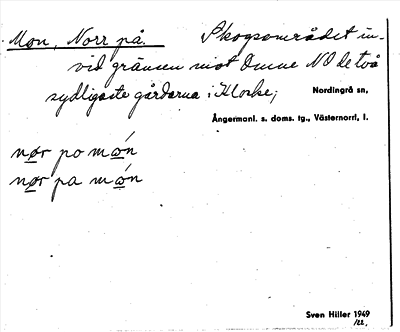 Mon, Norr på. Skogsområdet in-
vid gränsen mot Omne NO de två
sydligaste gårdarna i Klocke;
Nordingrå sn,
Ångermanl. s. doms. tg., Västernorrl. l.
nør po mǿn
nør pa mǿn
Sven Hiller 1949
/22.